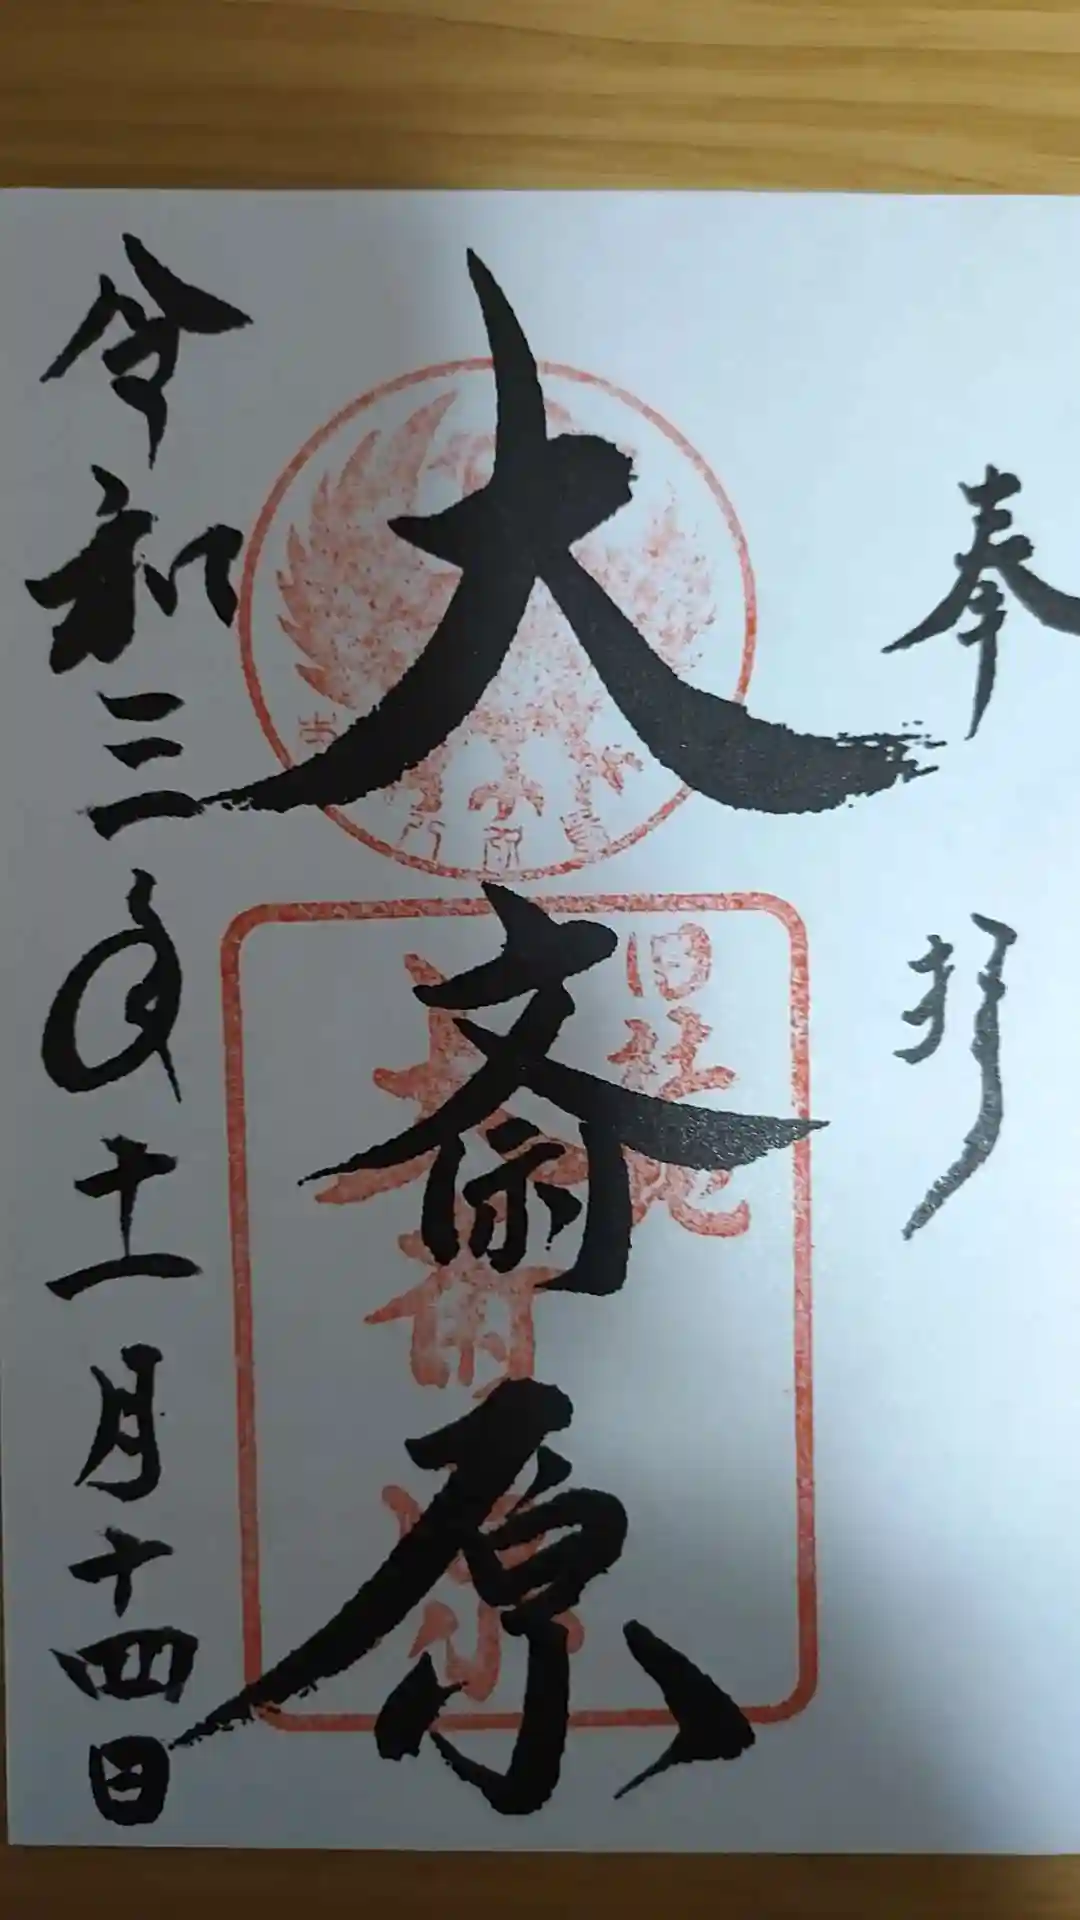 奉拝
大斎原
旧社地
大斎原
令和三年十一月十四日